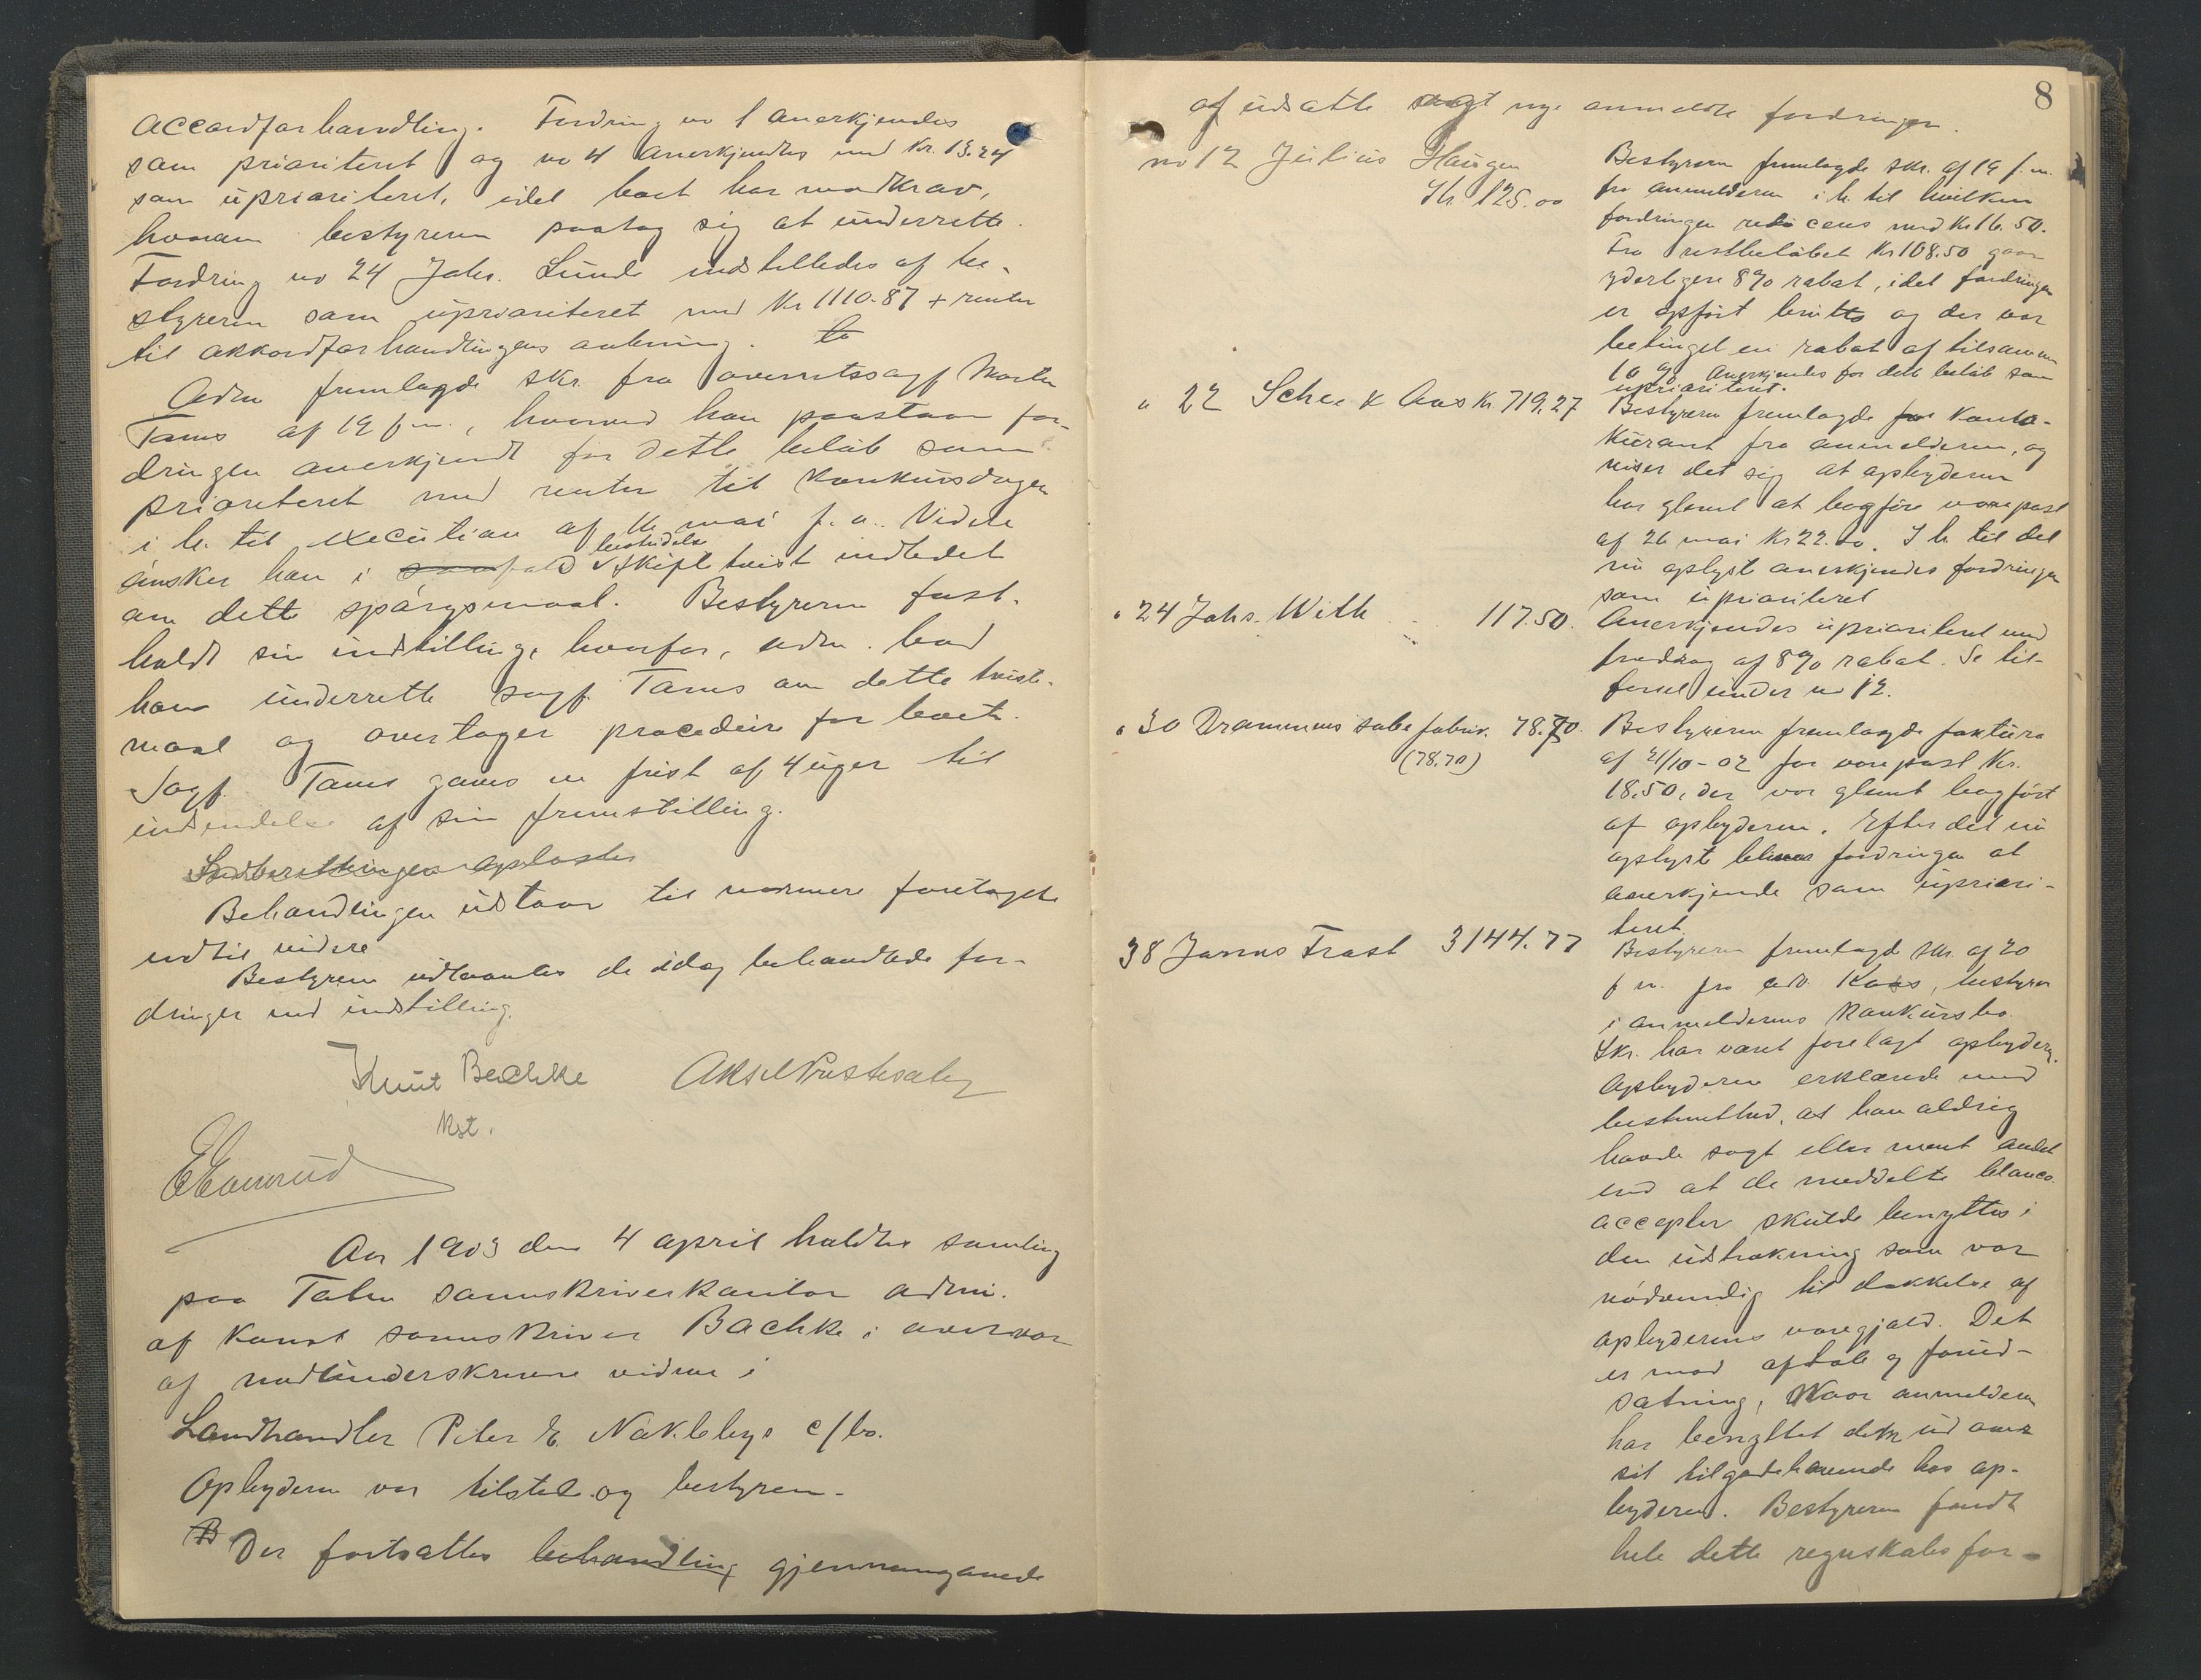 accordforhandling. Fordring no 1 anerkjendes
som prioriteret og no 4 anerkjendes med kr. 13.24
som uprioriteret, idet boet har modkrav,
hvorom bestyreren paatog sig at underrette.
Fordring no 24 Johs. Lunde indstilledes af be-
styreren som uprioriteret med kr 1110.87 + renter
til akkordforhandlingens aabning.
Adm fremlagde skr. fra overretssagf
Tams af 19 f. m., hvorved han paastaar for-
dringen anerkjendt for dette beløb som
prioriteret med renter til konkursdagen
i h. til execution af 16 mai f. a. Videre
ønsker han i bestridelse skiftetvist indledet
om dette spørgsmaal. Bestyreren fast-
holdt sin indstilling, hvorfor adm. bad
ham underrette sagf. Tams om dette tviste-
maal og overtager procedure for boet.
Sagf. Tams gaves en frist af 4 uger til
indsendelse af sin fremstilling.
Indberetningen oplæstes
Behandlingen udstaar til nærmere foretages
indtil videre
Bestyreren udlaantes de idag behandlede for-
dringer med indstilling.
Knut Bachke
Kst.
Aar 1903 den 4 april holdtes samling
paa Toten sorenskriverkontor adm.
af Konst sorenskriver Bachke i overvær
af nedunderskrevne vidner i
Landhandler Peter E. Naklebys c/bo.
Opbyderen var tilstede og bestyreren.
Der fortsattes behandling gjennemgaaende
8
af udsatte samt nye anmeldte fordringer.
no 12 Julius Haugen
Kr. 125.00
Bestyreren fremlagde skr. af 19 f. m.
fra anmelderen i h. til hvilken
fordringen reduceres med kr 16.50.
Fra restbeløbet kr 108.50 gaar
yderligere 8% rabat, idet fordringen
er opført brutto og der var
betinget en rabat af tilsammen
10 %. Anerkjendes for dette beløb som
uprioriteret.
" 22 Schee & Aas kr. 719.27
Bestyreren fremlagde Konto-
kurant fra anmelderen, og
viser det sig at opbyderen
har glemt at bogføre varepost
af 26 mai kr 22.00. I h. til det
nu oplyste anerkjendes fordringen
som uprioriteret
" 24 Johs. With 117.50.
Anerkjendes uprioriteret med
fradrag af 8% rabat. Se til-
førsel under no 12.
" 30 Drammens sæbefabrik. 78.70.
(78.70)
Bestyreren fremlagde faktura
af 21/10-02 for varepost Kr.
18.50, der var glemt bogført
af opbyderen. Efter det nu
oplyste bliver fordringen at
anerkjende som upriori-
teret.
38 Jarius Frost 3144.77
Bestyreren fremlagde skr. af 20
f. m. fra adv. Kaas, bestyrer
i anmelderens Konkursbo.
Skr. har været forelagt opbyderen.
Opbyderen erklærede med
bestemthed, at han aldrig
havde sagt eller ment andet
end at de meddelte blanco
accepter skulde benyttes i
den udstrækning som var
nødvendig til dækkelse af
opbyderens varegjæld. Det
er mod aftale og forud-
sætning, naar anmelderen
har benyttet dem ud over
sit tilgodehavende hos op-
byderen. Bestyreren fandt
hele dette regnskabsfor-